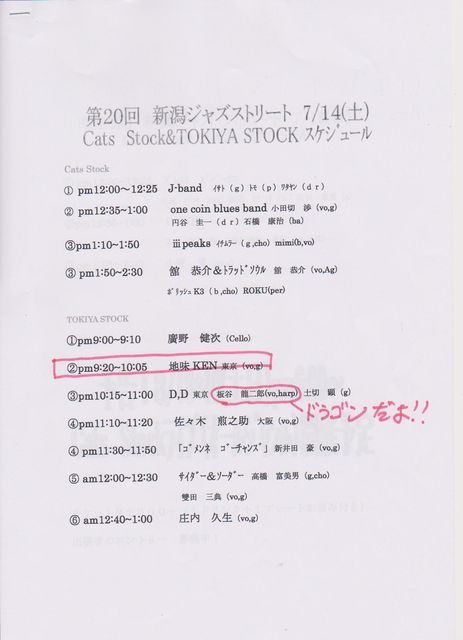 第20回 新潟ジャズストリート 7/14(土)
Cats Stock&TOKIYA STOCK スケジュール
Cats Stock
① pm12:00～12:25 J-band ｲｻﾄ(g)ﾄﾓ(p)ﾜﾀﾔﾝ(dr)
② pm12:35～1:00 one coin blues band 小田切 渉(vo,g)
円谷 圭一(dr)石橋 康治(ba)
③pm1:10～1:50 iiipeaks ｲﾁﾑﾗｰ(g,cho) mimi(b,vo)
③ pm1:50～2:30 舘 恭介&ﾄﾗｯﾄﾞｿｳﾙ 舘 恭介(vo,Ag)
ﾎﾞﾘｯｼｭK3(b,cho) ROKU(per)
TOKIYA STOCK
①pm9:00～9:10 廣野 健次(Cello)
②pm9:20～10:05 地味KEN 東京(vo,g)
③pm10:15～11:00 D,D 東京 板谷 龍二郎(vo,harp) 土切 顕(g)
ドラゴンだよ!!
④pm11:10～11:20 佐々木 煎之助 大阪(vo,g)
④ pm11:30～11:50 「ｺﾞﾒﾝﾈ ｺﾞｰﾁｬﾝｽﾞ」新井田 豪(vo,g)
⑤ am12:00～12:30 ｻｲﾀﾞｰ&ｿｰﾀﾞｰ 高橋 富美男(g,cho)
雙田 三典(vo,g)
⑥ am12:40～1:00 庄内 久生(vo,g)